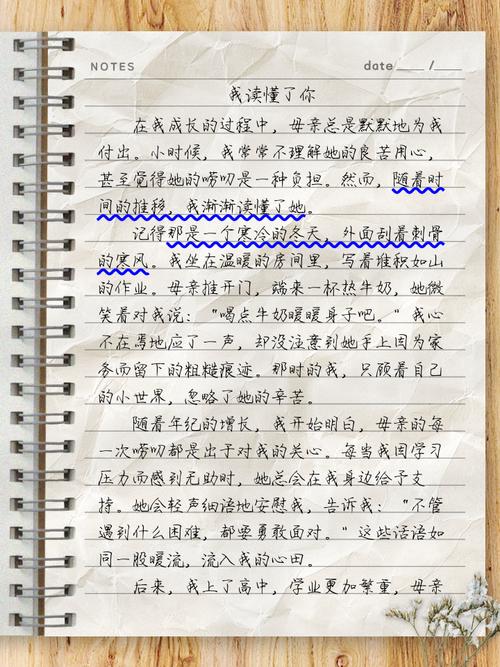 NOTES
date ____ / ____
我读懂了你
在我成长的过程中，母亲总是默默地为我
付出。小时候，我常常不理解她的良苦用心，
甚至觉得她的唠叨是一种负担。然而，随着时
间的推移，我渐渐读懂了她。
记得那是一个寒冷的冬天，外面刮着刺骨
的寒风。我坐在温暖的房间里，写着堆积如山
的作业。母亲推开门，端来一杯热牛奶，她微
笑着对我说：“喝点牛奶暖暖身子吧。”我心
不在焉地应了一声，却没注意到她手上因为家
务而留下的粗糙痕迹。那时的我，只顾着自己
的小世界，忽略了她的辛苦。
随着年纪的增长，我开始明白，母亲的每
一次唠叨都是出于对我的关心。每当我因学习
压力而感到无助时，她总会在我身边给予支
持。她会轻声细语地安慰我，告诉我：“不管
遇到什么困难，都要勇敢面对。”这些话语如
同一股暖流，流入我的心田。
后来，我上了高中，学业更加繁重，母亲